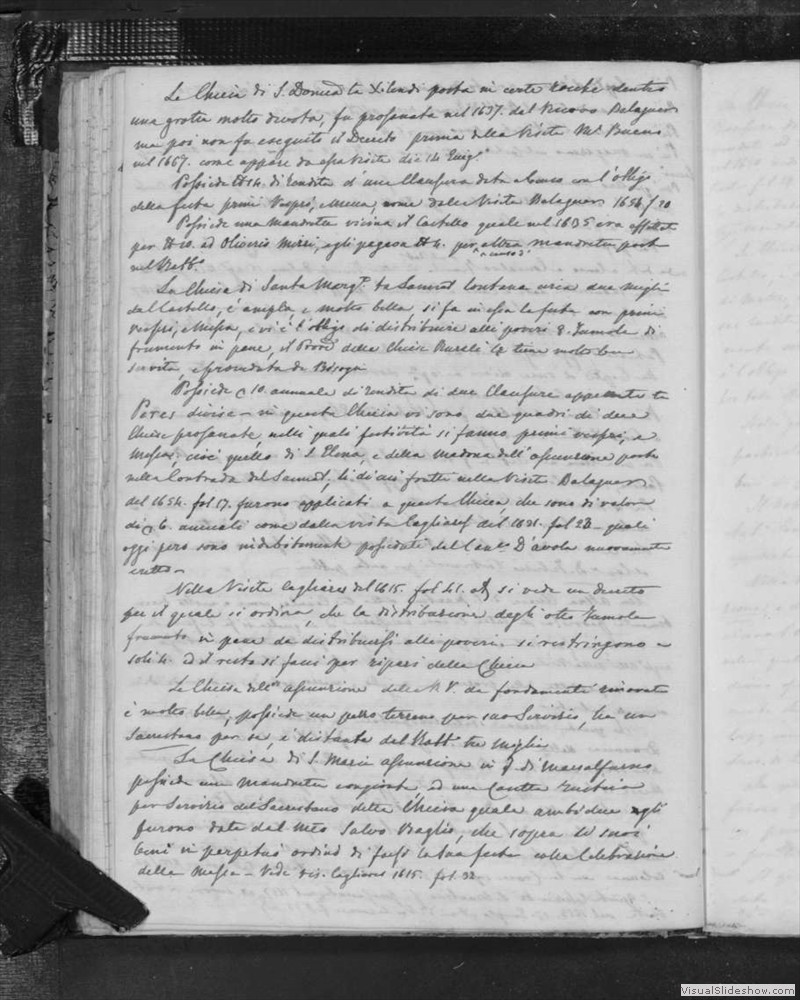 La Chiesa di S. Domca ta Xilendi posta in certe rocche dentro
una grotta molto divota, fu profanata nel 1637. dal Vescovo Balaguer
ma poi non fu eseguito il Decreto prima della Visita Mr. Bueno
nel 1667. come appare da essa visita
Possiede di rendita d'una Clausura data a Censo con l'obligo
della festa primi Vespri, e Messa, come dalla Visita Balaguer 1654/20
Possiede una Mandretta vicina il Castello quale nel 1635 era affittata
per ad Oliverio Mizzi, egli pagava per altra mandretta posta
nel Rabbo.
La Chiesa di Santa Marga. ta Sannat lontana circa due miglia
dal Castello, è ampla, e molto bella, si fa in essa la festa con primi
vespri, e Messa, e vi è l'obligo di distribuire alli poveri 8. Tumola di
frumento in pane, il Procre. delle Chiese Rurali la tiene molto ben
servita, e proveduta da Bisogni
Possiede 10. annuale di rendita di due Clausure appellate ta
Peres divise - in questa Chiesa vi sono due quadri di due
Chiese profanate, nelli quali festività si fanno primi vespri, e
Messa; cioè quello di S. Elena, e della Madona dell'assunzione poste
nella Contrada del Sannat, li di cui frutti nella Visita Balaguer
del 1654. fol. 17. furono applicati a questa Chiesa, che sono di valore
di 6. annuali come dalla visita Cagliares del 1621. fol 28 - quali
oggi pero sono indebitamente possidati dal Canto. D'avola nuovamente
eretto -
Nella Visita Cagliares del 1615. fol 41. si vede un decreto
per il quale si ordina, che la distribuzione degli otto Tumola
frumento in pane da distribuirsi alli poveri si restringono a
soli 4. ed il resto si facci per ripari della Chiesa
La Chiesa dell'assunzione della B. V. da fondamenti rinovata
è molto bella, possiede un pezzo terreno per suo Servizio, ha un
Sacrestano per se, è distante dal Rabbo. tre miglia
La Chiesa di S. Maria assunzione in q. di Marsalforno
possiede una Mandretta congionta ad una Casetta rustica
per Servizio del Sacrestano della Chiesa quale ambidue egli
furono date dal Salvo Vaglio, che sopra li suoi
beni in perpetuo ordinò di farsi la sua festa colla Celebrazione
della Messa - Vide Vis. Cagliares 1615. fol. 32
VisualSlideshow.com